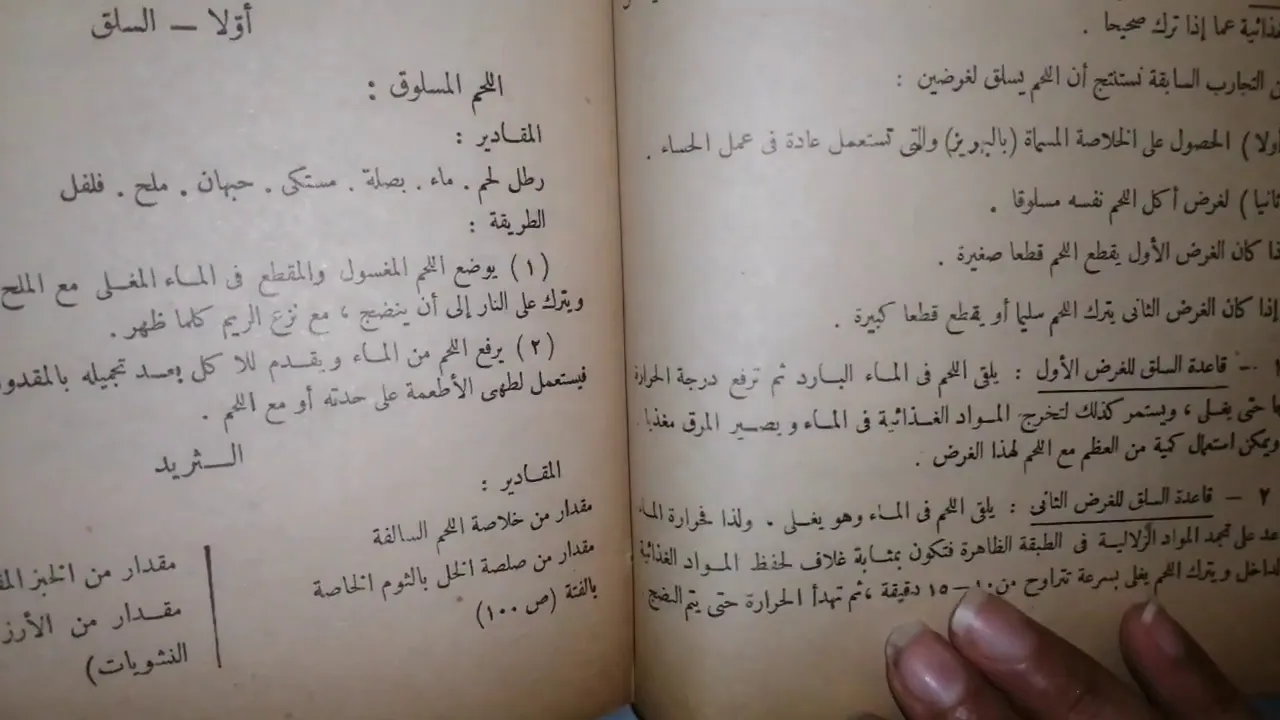 غذائية عما إذا ترك صحيحا .
التجارب السابقة نستنتج أن اللحم يسلق لغرضين :
أولا ) الحصول على الخلاصة المسماة (بالبهريز) والتى تستعمل عادة فى عمل الحساء .
ثانيا ) لغرض أكل اللحم نفسه مسلوقا .
كان الغرض الأول يقطع اللحم قطعا صغيرة .
إذا كان الغرض الثانى يترك اللحم سليما أو يقطع قطعا كبيرة .
١ — قاعدة السلق للغرض الأول : يلقى اللحم فى الماء البارد ثم ترفع درجة الحرارة
حتى يغلى ، ويستمر كذلك لتخرج المواد الغذائية فى الماء ويصير المرق مغذيا .
ويمكن استعمال كمية من العظم مع اللحم لهذا الغرض .
٢ — قاعدة السلق للغرض الثانى : يلقى اللحم فى الماء وهو يغلى . ولذا فحرارة الماء
على تجمد المواد الزلالية فى الطبقة الظاهرة فتكون بمثابة غلاف لحفظ المواد الغذائية
ويترك اللحم يغلى بسرعة تتراوح من ١٠ — ١٥ دقيقة ، ثم تهدأ الحرارة حتى يتم النضج
أولا — السلق
اللحم المسلوق :
المقادير :
رطل لحم . ماء . بصلة . مستكى . حبهان . ملح . فلفل
الطريقة :
(١) يوضع اللحم المغسول والمقطع فى الماء المغلى مع الملح
ويترك على النار إلى أن ينضج ، مع نزع الريم كلما ظهر .
(٢) يرفع اللحم من الماء ويقدم للأكل بعد تجميله
فيستعمل لطهى الأطعمة على حدته أو مع اللحم .
الثريد
المقادير :
مقدار من خلاصة اللحم السالفة
مقدار من صلصة الخل بالثوم الخاصة
بالفتة (ص ١٠٠)
مقدار من الخبز
مقدار من الأرز
النشويات)